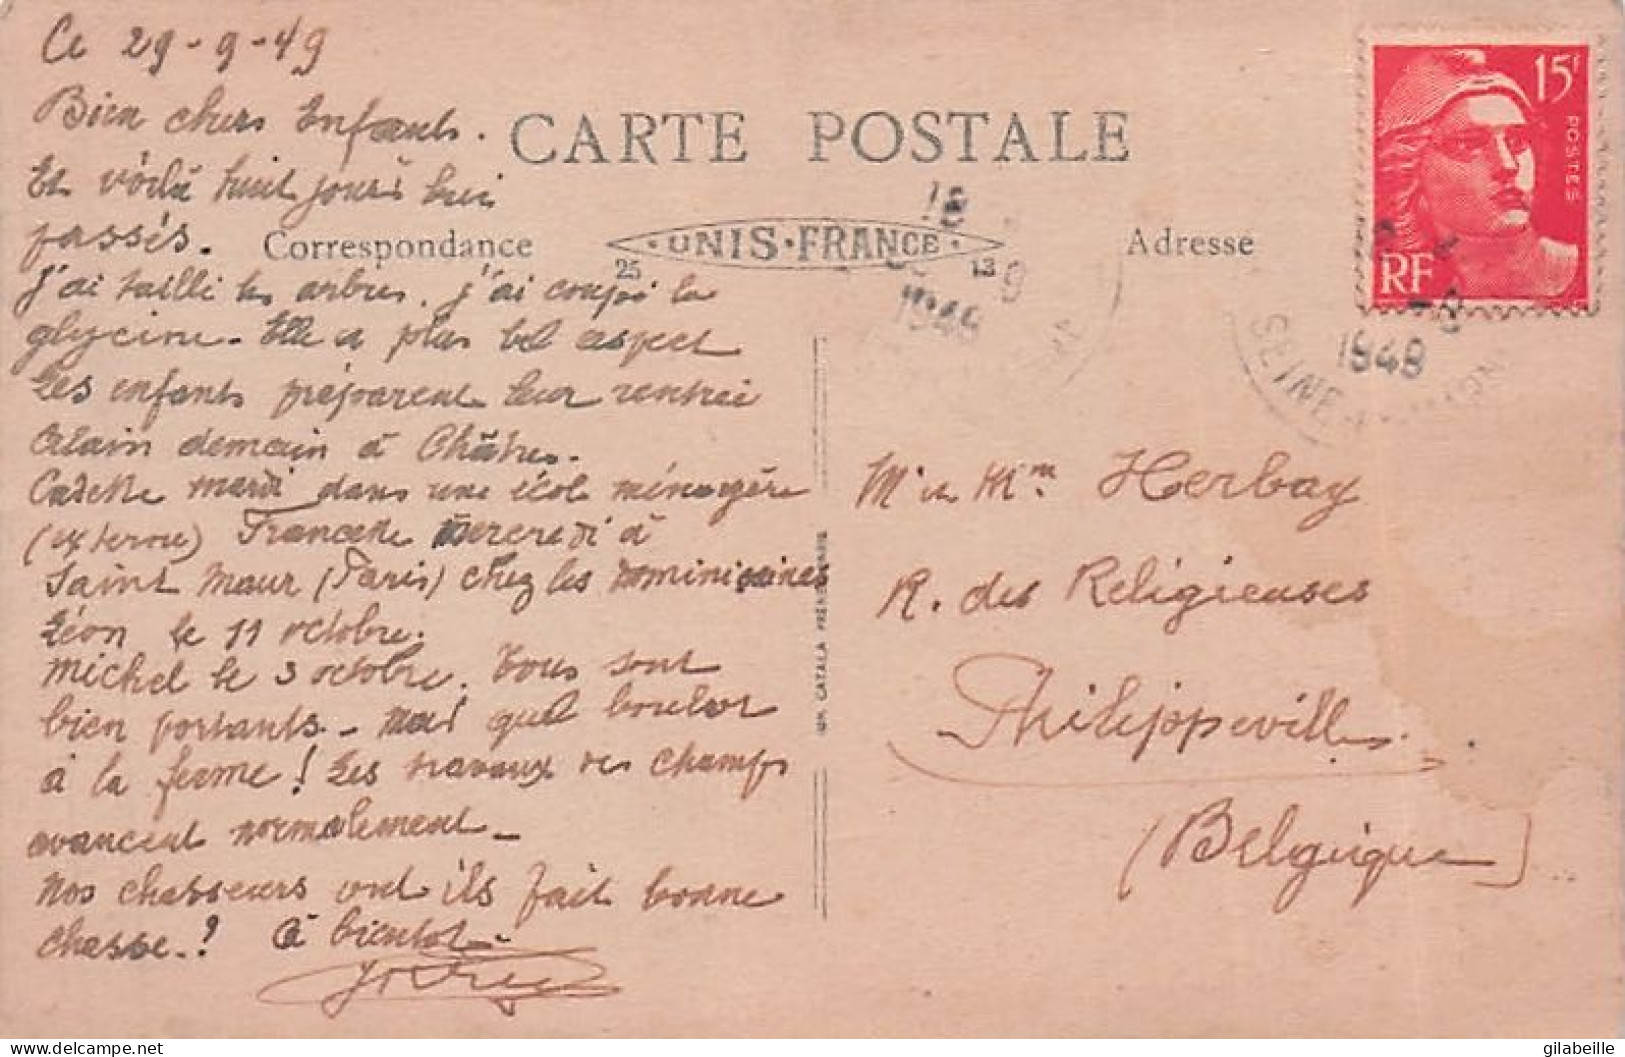 Ce 29-9-49
Bien chers Enfants.
Et voilà huit jours bien
passés.
J'ai taillé les arbres. j'ai coupé la
glycine. Elle a plus bel aspect
Les enfants préparent leur rentrée
Alain demain à Châtres.
Cadette mardi dans une école ménagère
(externe) Francette Mercredi à
Saint Maur (Paris) chez les Dominicaines
Léon le 11 octobre.
Michel le 3 octobre. Tous sont
bien portants. Mais quel boulot
à la ferme! Les travaux des champs
avancent normalement.
Nos chasseurs ont ils fait bonne
chasse.? à bientôt.
CARTE POSTALE
Correspondance
UNIS-FRANCE
25 13
Adresse
18
9
1949
15F
POSTES
RF
1949
SEINE
PH. CATALA FRÈRES PARIS
Mr et Mm Herbay
R. des Religieuses
Philippeville
(Belgique)
delcampe.net
gilabeille